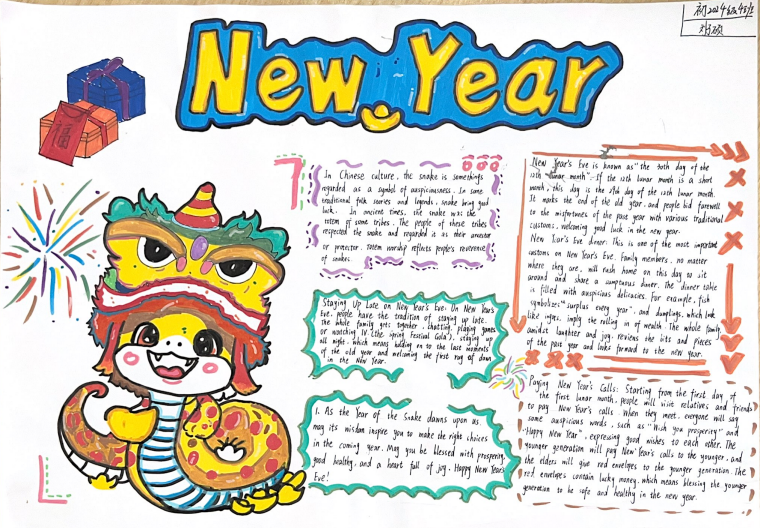 New Year
初2024级24班
In Chinese culture, the snake is somethings
regarded as a symbol of auspiciousness. In some
traditional folk stories and legends, snake bring good
luck. In ancient times, the snake was the
totem of some tribes. The people of these tribes
respected the snake and regarded it as their ancestor
or protector. totem worship reflects people's reverence
of snakes.
Staying Up Late on New Year's Eve: On New Year's
Eve, people have the tradition of staying up late.
The whole family gets together, chatting, playing games
or watching TV (the Spring Festival Gala), staying up
all night, which means holding on to the last moments
of the old year and welcoming the first ray of dawn
in the New Year.
1. As the Year of the Snake dawns upon us,
may its wisdom inspire you to make the right choices
in the coming year. May you be blessed with prosperity,
good healthy, and a heart full of joy. Happy New Year's
Eve!
New Year's Eve is known as "the 30th day of the
12th lunar month". If the 12th lunar month is a short
month, this day is the 29th day of the 12th lunar month.
It marks the end of the old year, and people bid farewell
to the misfortunes of the past year with various traditional
customs, welcoming good luck in the new year.
New Year's Eve dinner: This is one of the most important
customs on New Year's Eve. Family members, no matter
where they are, will rush home on this day to sit
around and share a sumptuous dinner. The dinner table
is filled with auspicious delicacies. For example, fish
symbolizes "surplus every year", and dumplings, which look
like ingots, imply the rolling in of wealth. The whole family,
amidst laughter and joy, reviews the bits and pieces
of the past year and looks forward to the new year.
Paying New Year's Calls: Starting from the first day of
the first lunar month, people will visit relatives and friends
to pay New Year's calls. When they meet, everyone will say
some auspicious words, such as "Wish you prosperity" and
"Happy New Year", expressing good wishes to each other. The
younger generation will pay New Year's calls to the younger, and
the elders will give red envelopes to the younger generation. The
red envelopes contain lucky money, which means blessing the younger
generation to be safe and healthy in the new year.
福